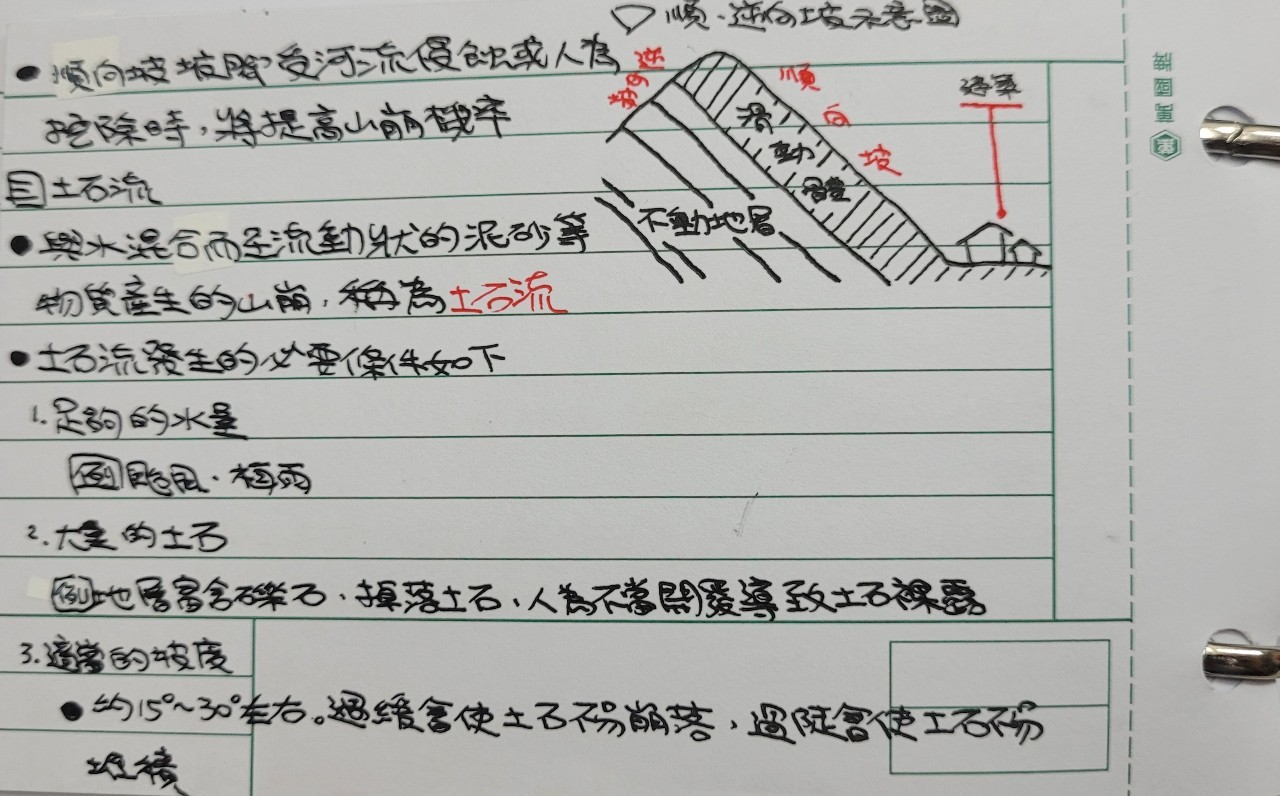 ▽順、逆向坡示意圖
● 順向坡坡腳受河流侵蝕或人為
挖除時，將提高山崩機率
逆向坡
順向坡
滑動岩層
不動地層
三 土石流
● 與水混合而呈流動狀的泥砂等
物質產生的山崩，稱為土石流
● 土石流發生的必要條件如下
1. 足夠的水量
例 颱風、梅雨
2. 大量的土石
例 地層富含礫石、掉落土石、人為不當開發導致土石裸露
3. 適當的坡度
● 約15°~30°左右。過緩會使土石不易崩落，過陡會使土石不易
堆積